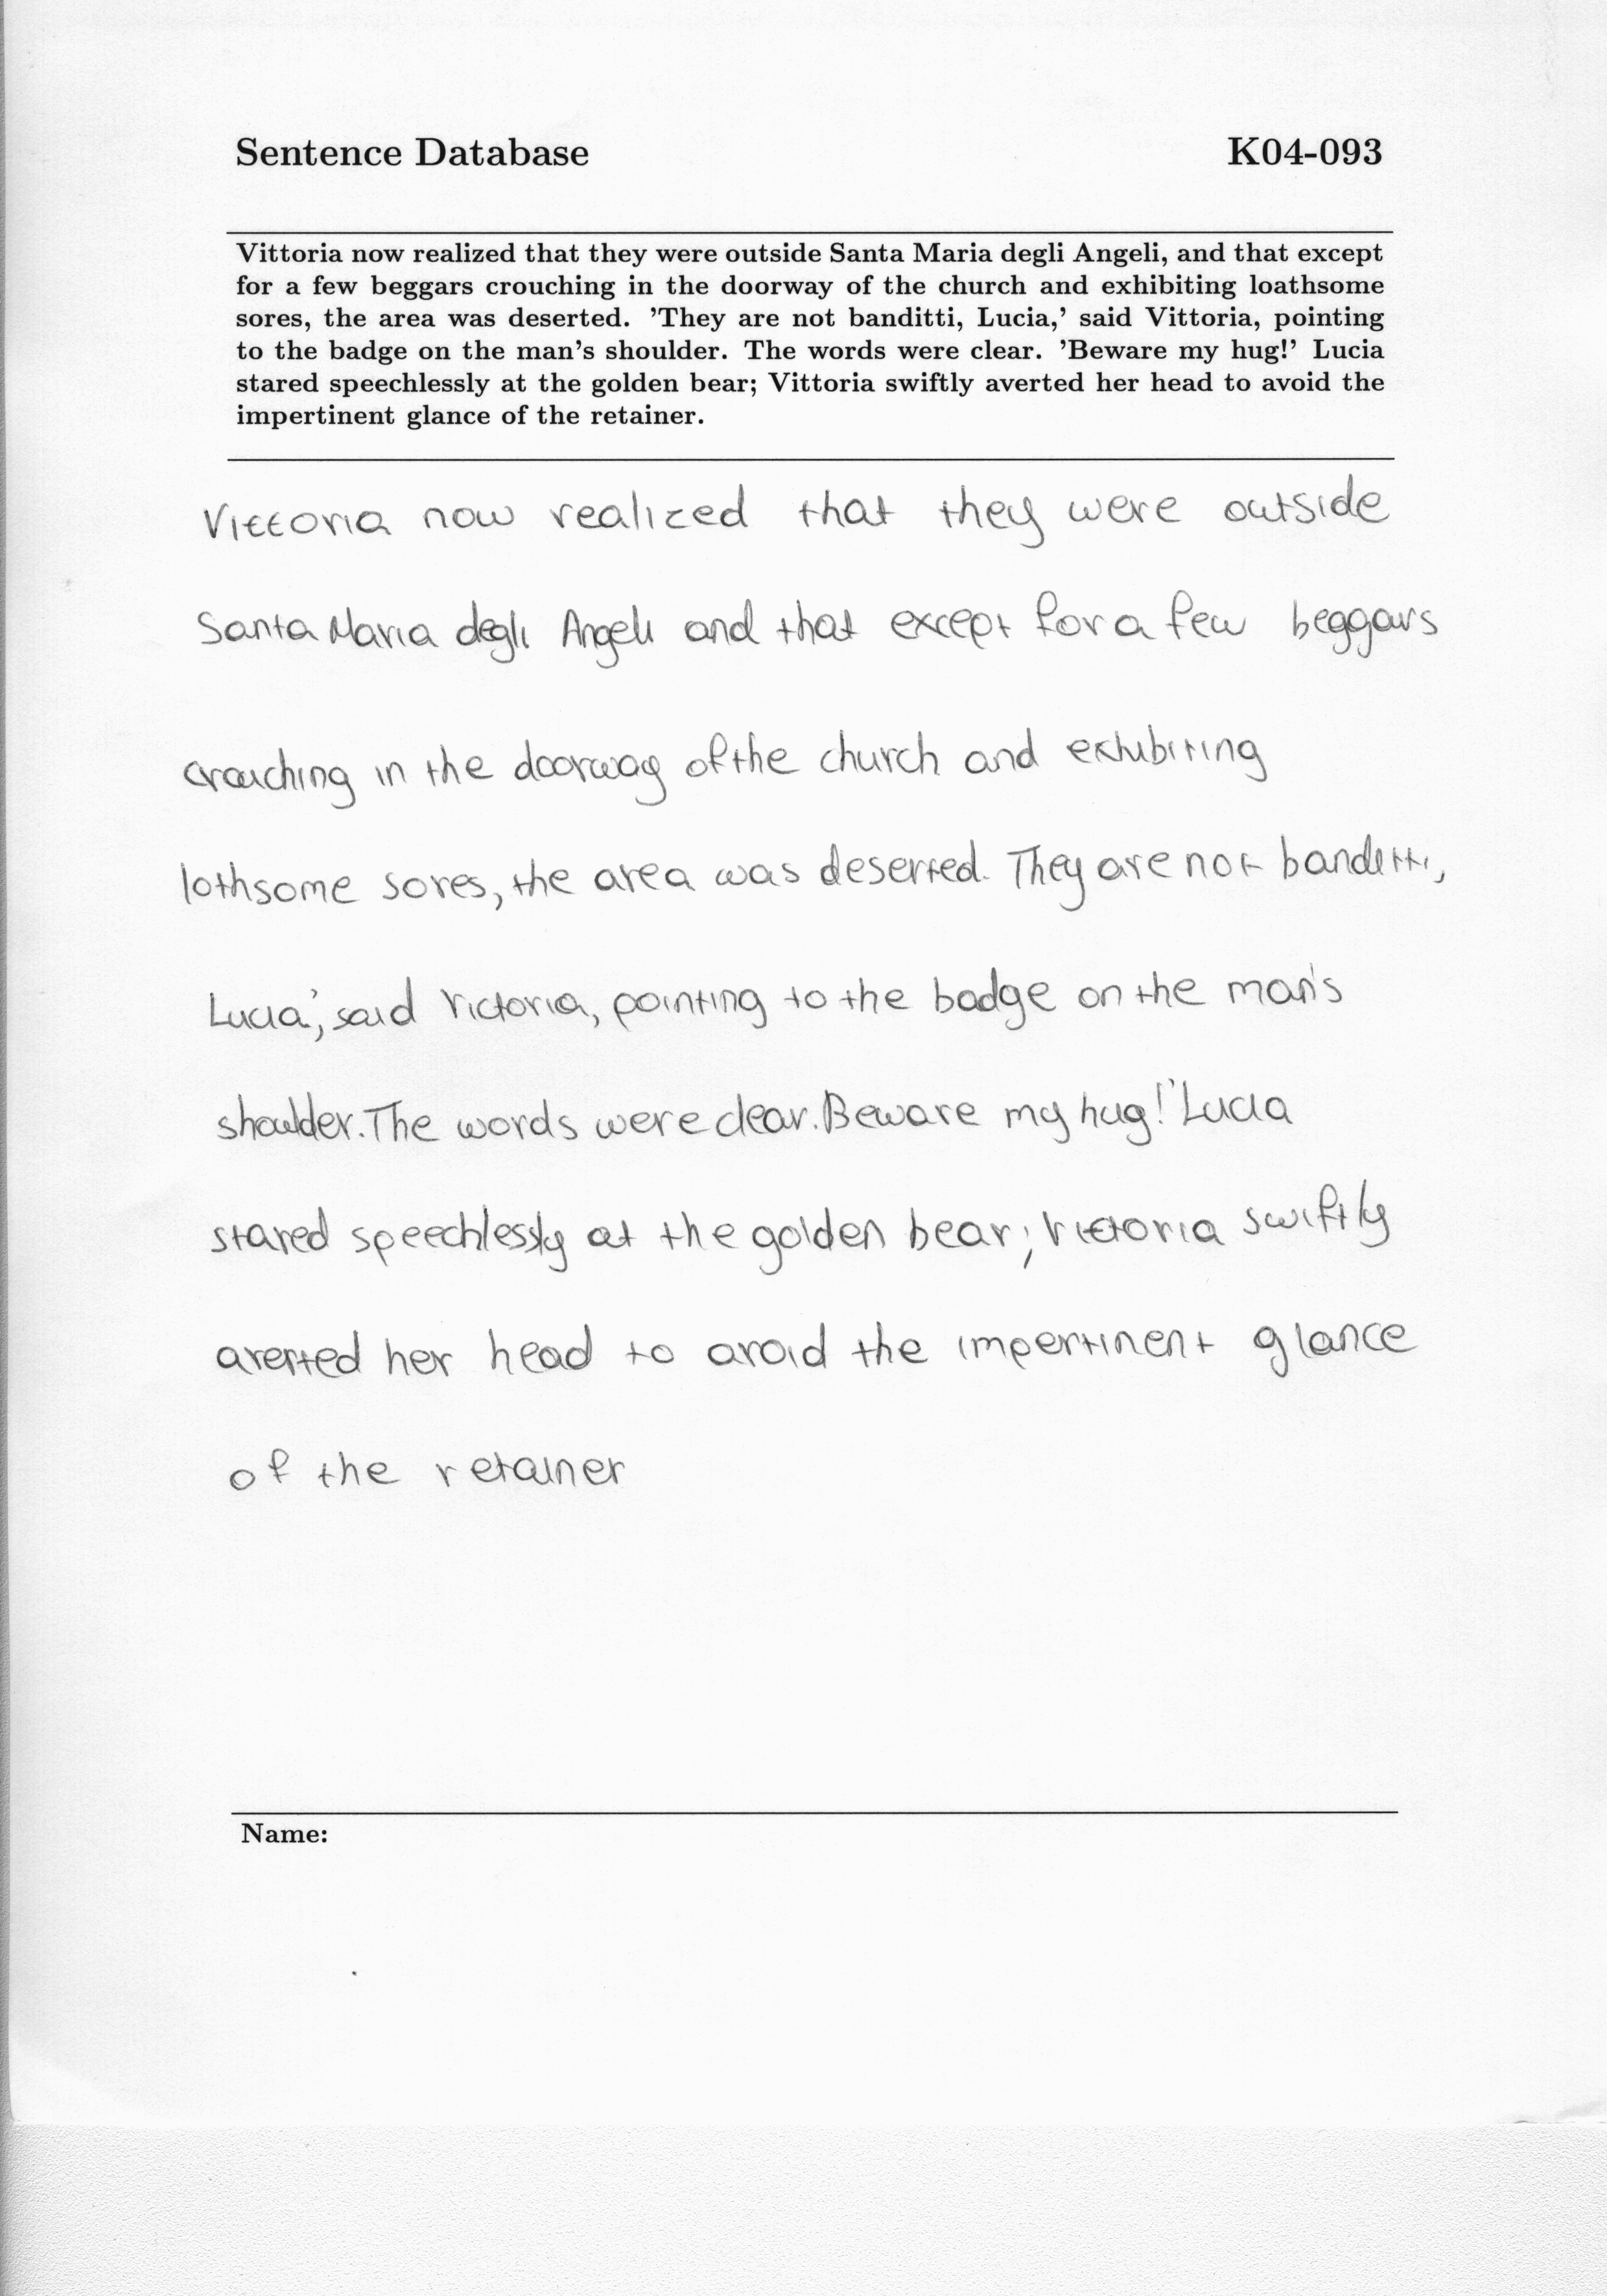 Sentence Database K04-093
Vittoria now realized that they were outside Santa Maria degli Angeli, and that except
for a few beggars crouching in the doorway of the church and exhibiting loathsome
sores, the area was deserted. 'They are not banditti, Lucia,' said Vittoria, pointing
to the badge on the man's shoulder. The words were clear. 'Beware my hug!' Lucia
stared speechlessly at the golden bear; Vittoria swiftly averted her head to avoid the
impertinent glance of the retainer.
Vittoria now realized that they were outside
Santa Maria degli Angeli and that except for a few beggars
crouching in the doorway of the church and exhibiting
lothsome sores, the area was deserted. They are not banditti,
Lucia,' said Victoria, pointing to the badge on the man's
shoulder. The words were clear. Beware my hug!' Lucia
stared speechlessly at the golden bear; Victoria swiftly
averted her head to avoid the impertinent glance
of the retainer
Name: